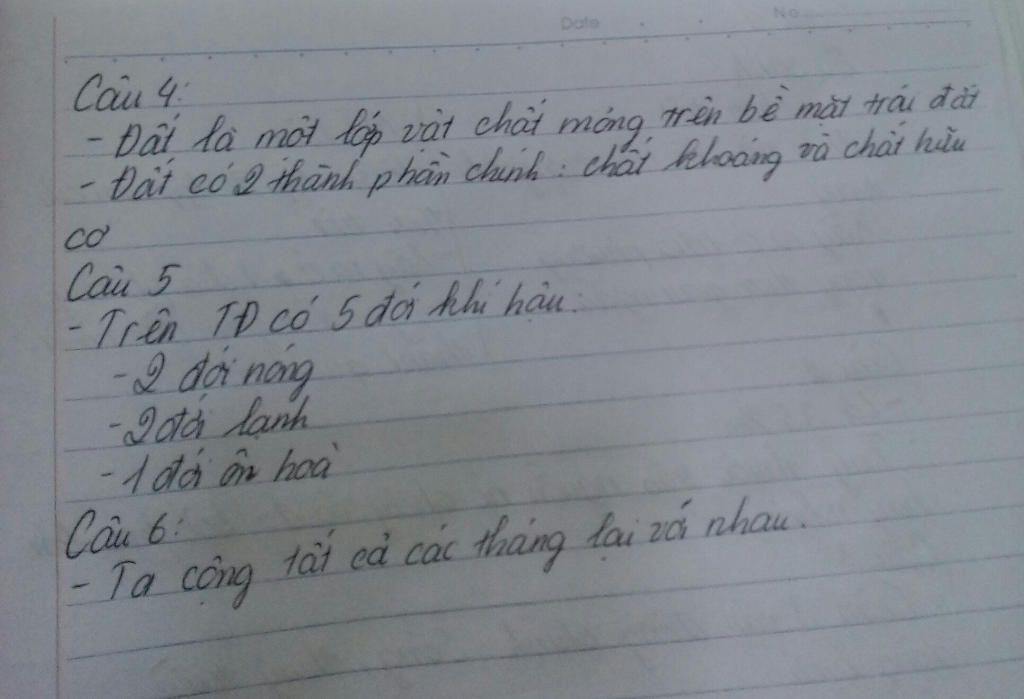 Date No
Câu 4:
- Đất là một lớp vật chất mỏng trên bề mặt trái đất
- Đất có 2 thành phần chính: chất khoáng và chất hữu
cơ
Câu 5
- Trên TĐ có 5 đới khí hậu:
- 2 đới nóng
- 2 đới lạnh
- 1 đới ôn hoà
Câu 6:
- Ta cộng tất cả các tháng lại với nhau.